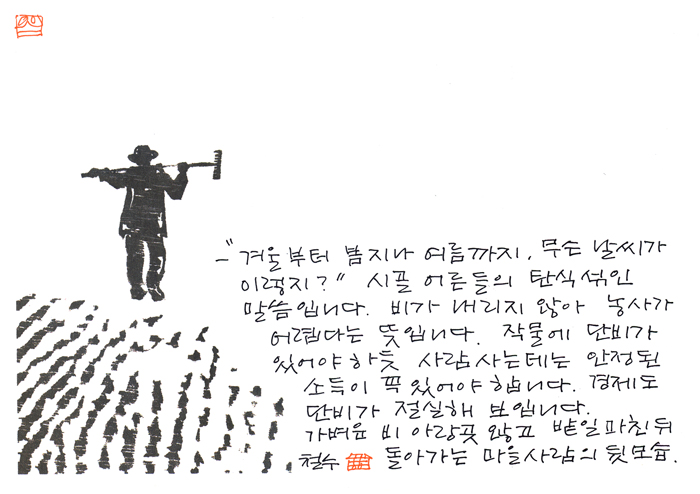 –"겨울부터 봄지나 여름까지, 무슨 날씨가
이렇지?" 시골 어른들의 탄식 섞인
말씀입니다. 비가 내리지 않아 농사가
어렵다는 뜻입니다. 작물에 단비가
있어야 하듯 사람사는데는 안정된
소득이 꼭 있어야 합니다. 경제도
단비가 절실해 보입니다.
가벼운 비 아랑곳 않고 밭일 마친 뒤
철수 돌아가는 마을사람의 뒷모습.